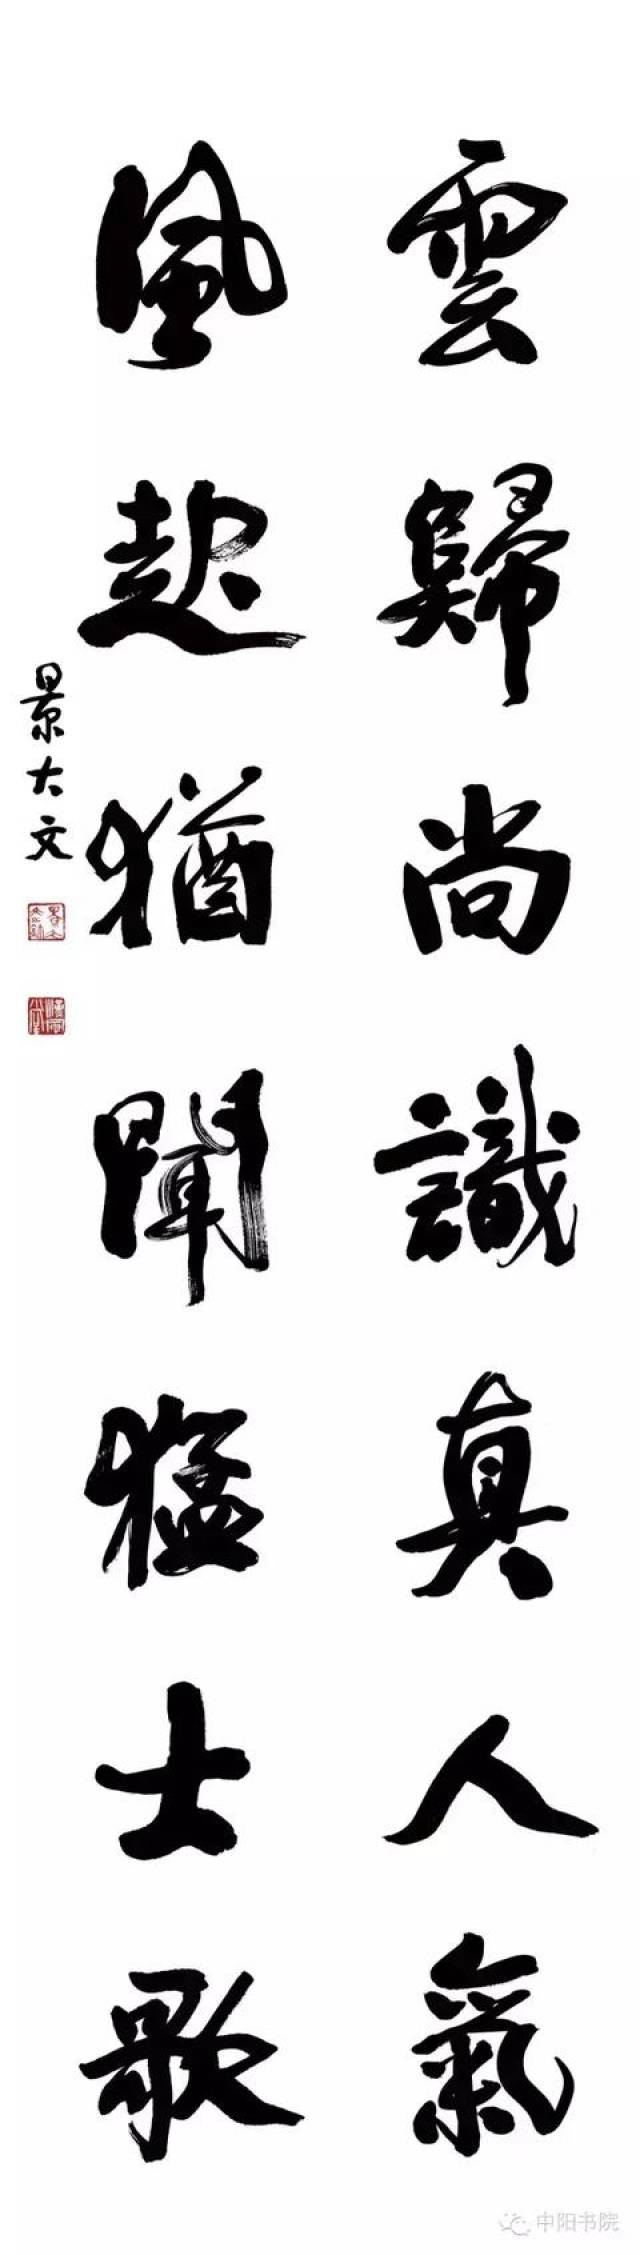 雲歸尚識真人氣
風起猶聞猛士歌
景大文
中阳书院